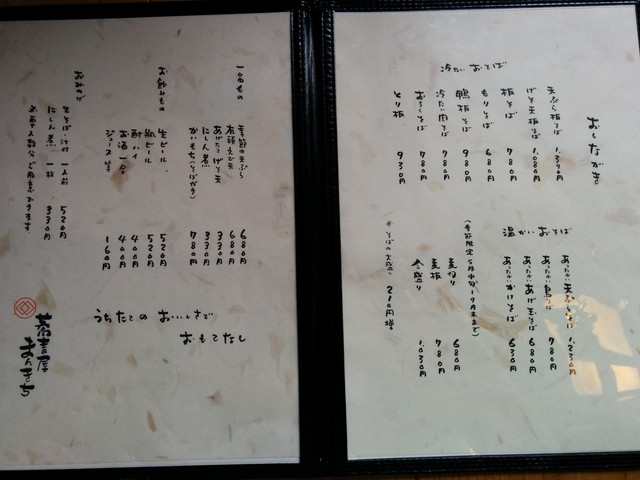 おしながき
冷たいおそば
天ぷら板そば 1,390円
げそ天板そば 1,080円
板そば 780円
もりそば 680円
鴨板そば 980円
冷たい肉そば 780円
おろしそば 780円
とり板 930円
温かいおそば
あったか天ぷらそば 1,230円
あったか鳥そば 780円
あったかあげ玉そば 680円
あったかかけそば 630円
(季節限定 5月中旬〜9月末まで)
麦切り 680円
麦板 780円
合盛り 1,030円
※そばの大盛り 210円増
一品もの
季節の天ぷら 680円
有頭えび天 680円
あげたてげそ天 330円
にしん煮 330円
かいもち(そばがき) 780円
お飲みもの
生ビール 520円
瓶ビール 520円
酎ハイ 400円
お酒 一合 400円
ジュース 等 160円
おみやげ
生そば・汁付 一人前 520円
にしん煮 一枚 330円
うちたての おいしさで
おもてなし
蕎書屋